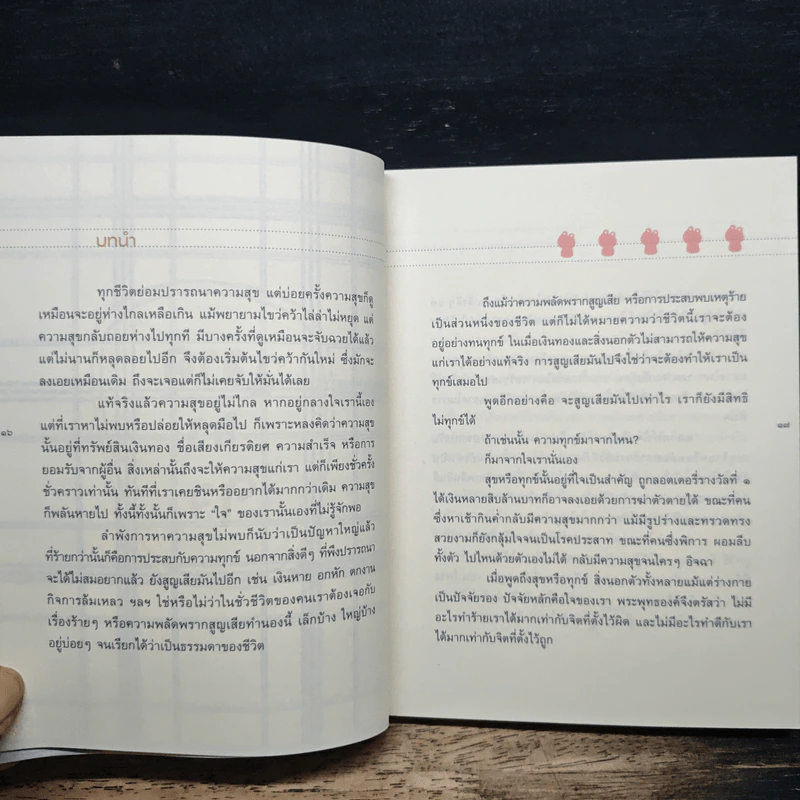 บทนำ
ทุกชีวิตย่อมปรารถนาความสุข แต่บ่อยครั้งความสุขก็ดู
เหมือนจะอยู่ห่างไกลเหลือเกิน แม้พยายามไขว่คว้าไล่ล่าไม่หยุด แต่
ความสุขกลับถอยห่างไปทุกที มีบางครั้งที่ดูเหมือนจะจับฉวยได้แล้ว
แต่ไม่นานก็หลุดลอยไปอีก จึงต้องเริ่มต้นไขว่คว้ากันใหม่ ซึ่งมักจะ
ลงเอยเหมือนเดิม ถึงจะเจอแต่ก็ไม่เคยจับให้มั่นได้เลย
แท้จริงแล้วความสุขอยู่ไม่ไกล หากอยู่กลางใจเรานี้เอง
แต่ที่เราหาไม่พบหรือปล่อยให้หลุดมือไป ก็เพราะหลงคิดว่าความสุข
นั้นอยู่ที่ทรัพย์สินเงินทอง ชื่อเสียงเกียรติยศ ความสำเร็จ หรือการ
ยอมรับจากผู้อื่น สิ่งเหล่านั้นถึงจะให้ความสุขแก่เรา แต่ก็เพียงชั่วครั้ง
ชั่วคราวเท่านั้น ทันทีที่เราเคยชินหรืออยากได้มากกว่าเดิม ความสุข
ก็พลันหายไป ทั้งนี้ทั้งนั้นก็เพราะ "ใจ" ของเรานั้นเองที่ไม่รู้จักพอ
ลำพังการหาความสุขไม่พบก็นับว่าเป็นปัญหาใหญ่แล้ว
ที่ร้ายกว่านั้นก็คือการประสบกับความทุกข์ นอกจากสิ่งดีๆ ที่พึงปรารถนา
จะได้ไม่สมอยากแล้ว ยังสูญเสียมันไปอีก เช่น เงินหาย อกหัก ตกงาน
กิจการล้มเหลว ฯลฯ ใช่หรือไม่ว่าในชั่วชีวิตของคนเราต้องเจอกับ
เรื่องร้ายๆ หรือความพลัดพรากสูญเสียทำนองนี้ เล็กบ้าง ใหญ่บ้าง
อยู่บ่อยๆ จนเรียกได้ว่าเป็นธรรมดาของชีวิต
๑๖
ถึงแม้ว่าความพลัดพรากสูญเสีย หรือการประสบพบเหตุร้าย
เป็นส่วนหนึ่งของชีวิต แต่ก็ไม่ได้หมายความว่าชีวิตนี้เราจะต้อง
อยู่อย่างทนทุกข์ ในเมื่อเงินทองและสิ่งนอกตัวไม่สามารถให้ความสุข
แก่เราได้อย่างแท้จริง การสูญเสียมันไปจึงใช่ว่าจะต้องทำให้เราเป็น
ทุกข์เสมอไป
พูดอีกอย่างคือ จะสูญเสียมันไปเท่าไร เราก็ยังมีสิทธิ
ไม่ทุกข์ได้
ถ้าเช่นนั้น ความทุกข์มาจากไหน?
ก็มาจากใจเรานั่นเอง
สุขหรือทุกข์นั้นอยู่ที่ใจเป็นสำคัญ ถูกลอตเตอรี่รางวัลที่ ๑
ได้เงินหลายสิบล้านบาทก็อาจลงเอยด้วยการฆ่าตัวตายได้ ขณะที่คน
ซึ่งหาเช้ากินค่ำกลับมีความสุขมากกว่า แม้มีรูปร่างและทรวดทรง
สวยงามก็ยังกลุ้มใจจนเป็นโรคประสาท ขณะที่คนซึ่งพิการ ผอมลีบ
ทั้งตัว ไปไหนด้วยตัวเองไม่ได้ กลับมีความสุขจนใครๆ อิจฉา
เมื่อพูดถึงสุขหรือทุกข์ สิ่งนอกตัวทั้งหลายแม้แต่ร่างกาย
เป็นปัจจัยรอง ปัจจัยหลักคือใจของเรา พระพุทธองค์จึงตรัสว่า ไม่มี
อะไรทำร้ายเราได้มากเท่ากับจิตที่ตั้งไว้ผิด และไม่มีอะไรทำดีกับเรา
ได้มากเท่ากับจิตที่ตั้งไว้ถูก
๑๗